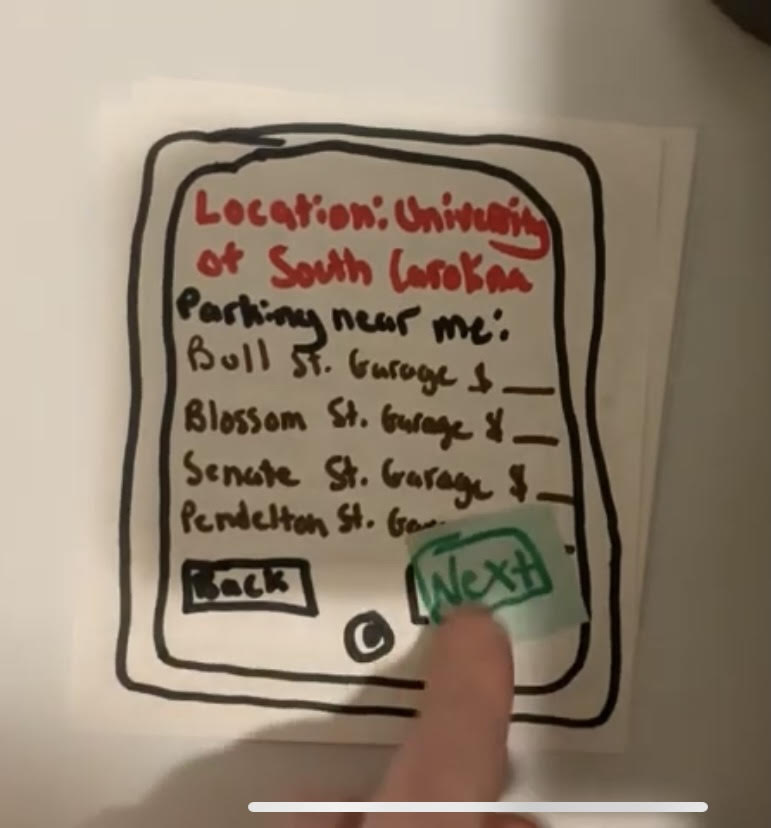 Location: University
of South Carolina
Parking near me:
Bull St. Garage $ __
Blossom St. Garage $ __
Senate St. Garage $ __
Pendelton St. Gar
Back
Next